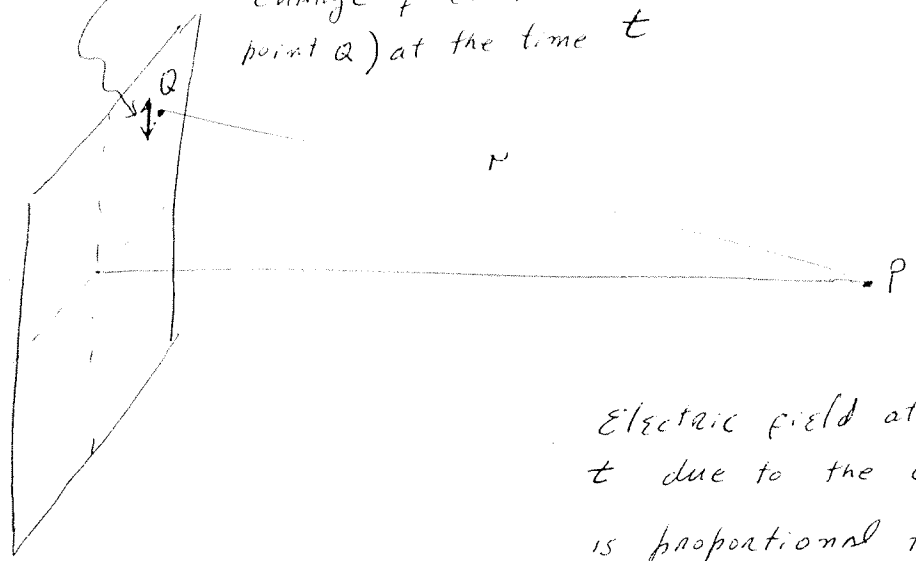 point Q) at the time t
Q
r
P
Electric field at
t due to the
is proportional